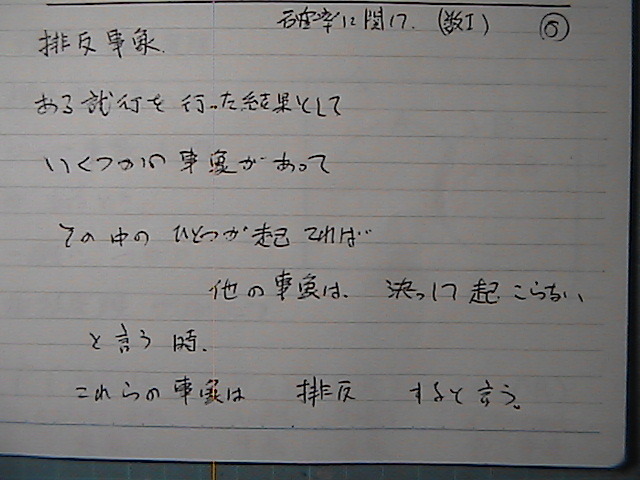 確率に関して (数I) ⑤
排反事象.
ある試行を行った結果として
いくつかの事象があって
その中のひとつが起これば
他の事象は. 決して起こらない
と言う時.
これらの事象は 排反 すると言う。